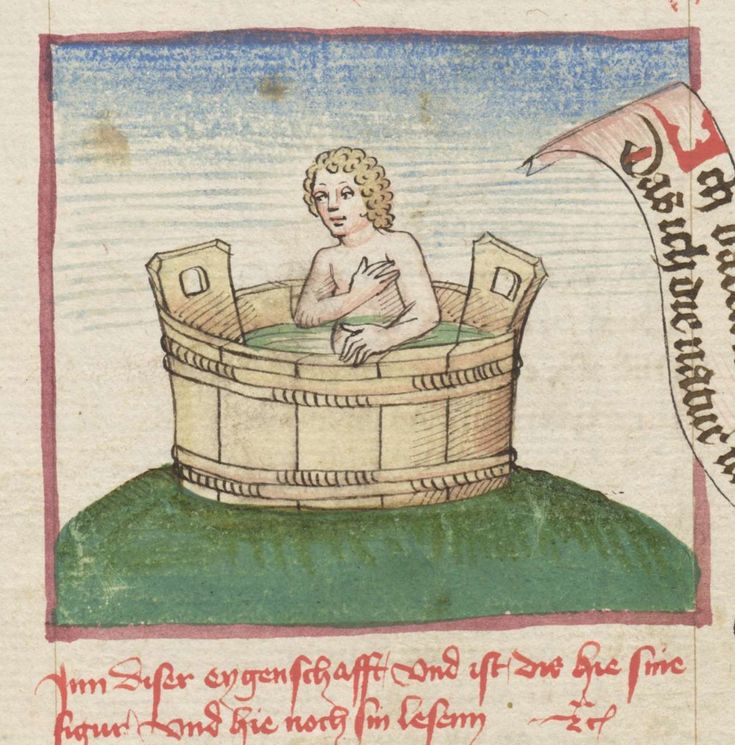 Ich
Das ich die natur
Jnn diser eygenschafft vnd ist dis hie sine
figur vnd hie noch sin lesenn